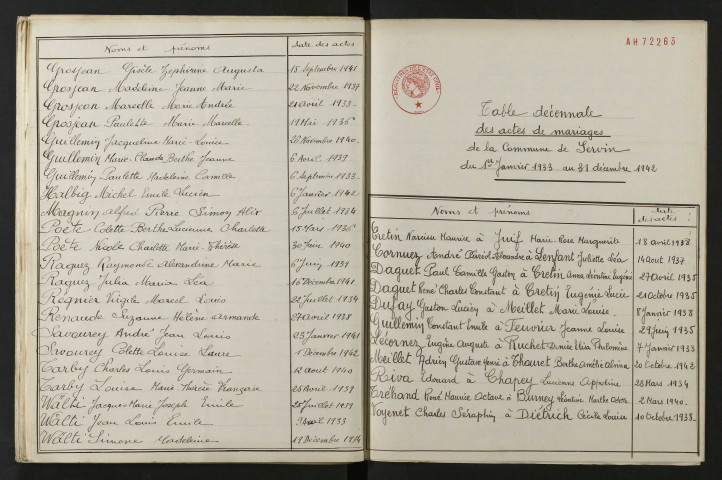 Noms et prénoms
Date des actes
Grosjean Gisèle Zéphirine Augusta 15 Septembre 1941
Grosjean Madeleine Jeanne Marie 22 Novembre 1937
Grosjean Marcelle Marie Andrée 21 avril 1933
Grosjean Paulette Marie Marcelle 19 Mai 1936
Guillemin Jacqueline Marie-Louise 26 Novembre 1940
Guillemin Marie-Claude Berthe Jeanne 6 Avril 1939
Guillemin Paulette Madeleine Camille 6 Septembre 1933
Halbig Michel Emile Lucien 6 Janvier 1942
Magnin Alfred Pierre Simon Alix 6 Juillet 1934
Poète Colette Berthe Lucienne Charlotte 15 Mars 1936
Poète Nicole Charlotte Marie-Thérèse 30 Juin 1940
Raguez Raymonde Alexandrine Marie 6 Juin 1939
Raguez Julia Maria Léa 16 Décembre 1941
Régnier Virgile Marcel Louis 22 Juillet 1934
Renaude Suzanne Hélène Armande 27 avril 1938
Savourey André Jean Louis 23 Janvier 1941
Savourey Colette Louise Laure 1 Décembre 1942
Tarby Charles Louis Germain 12 aout 1940
Tarby Louise Marie Thérèse 26 Avril 1939
Wälti Jacques Marie Joseph Emile 25 Juillet 1939
Wälti Jean Louis Emile 1933
Wälti Simone Madeleine 19 Décembre 1934
AH 72263
Table décennale
des actes de mariages
de la Commune de Servin
du 1er Janvier 1933 au 31 décembre 1942
Noms et prénoms
Date des actes
Cretin Narcisse Maurice à Juif Marie Rose Marguerite 18 avril 1938
Cornuez André Alexandre à Lenfant Juliette Léa 14 Aout 1937
Daguet Paul Camille Gaston à Cretin Anna Léontine Eugénie 27 avril 1935
Daguet René Charles Constant à Cretin Eugénie Lucie 21 Octobre 1935
Dufay Gaston Lucien à Meillet Marie Louise 8 Janvier 1938
Guillemin Constant Emile à Feuvrier Jeanne Louise 29 Juin 1935
Lécornez Eugène Auguste à Ruchet Denise Philomène 7 Janvier 1933
Meillet Adrien Gustave Henri à Thouret Berthe Amélie Alvina 20 Octobre 1942
Riva Edouard à Chapey Lucienne Appoline 28 Mars 1934
Tréhand René Maurice Octave à Burney Léontine Marthe 2 Mars 1940
Voynnet Charles Séraphin à Diétrich Cécile Louise 10 Octobre 1938